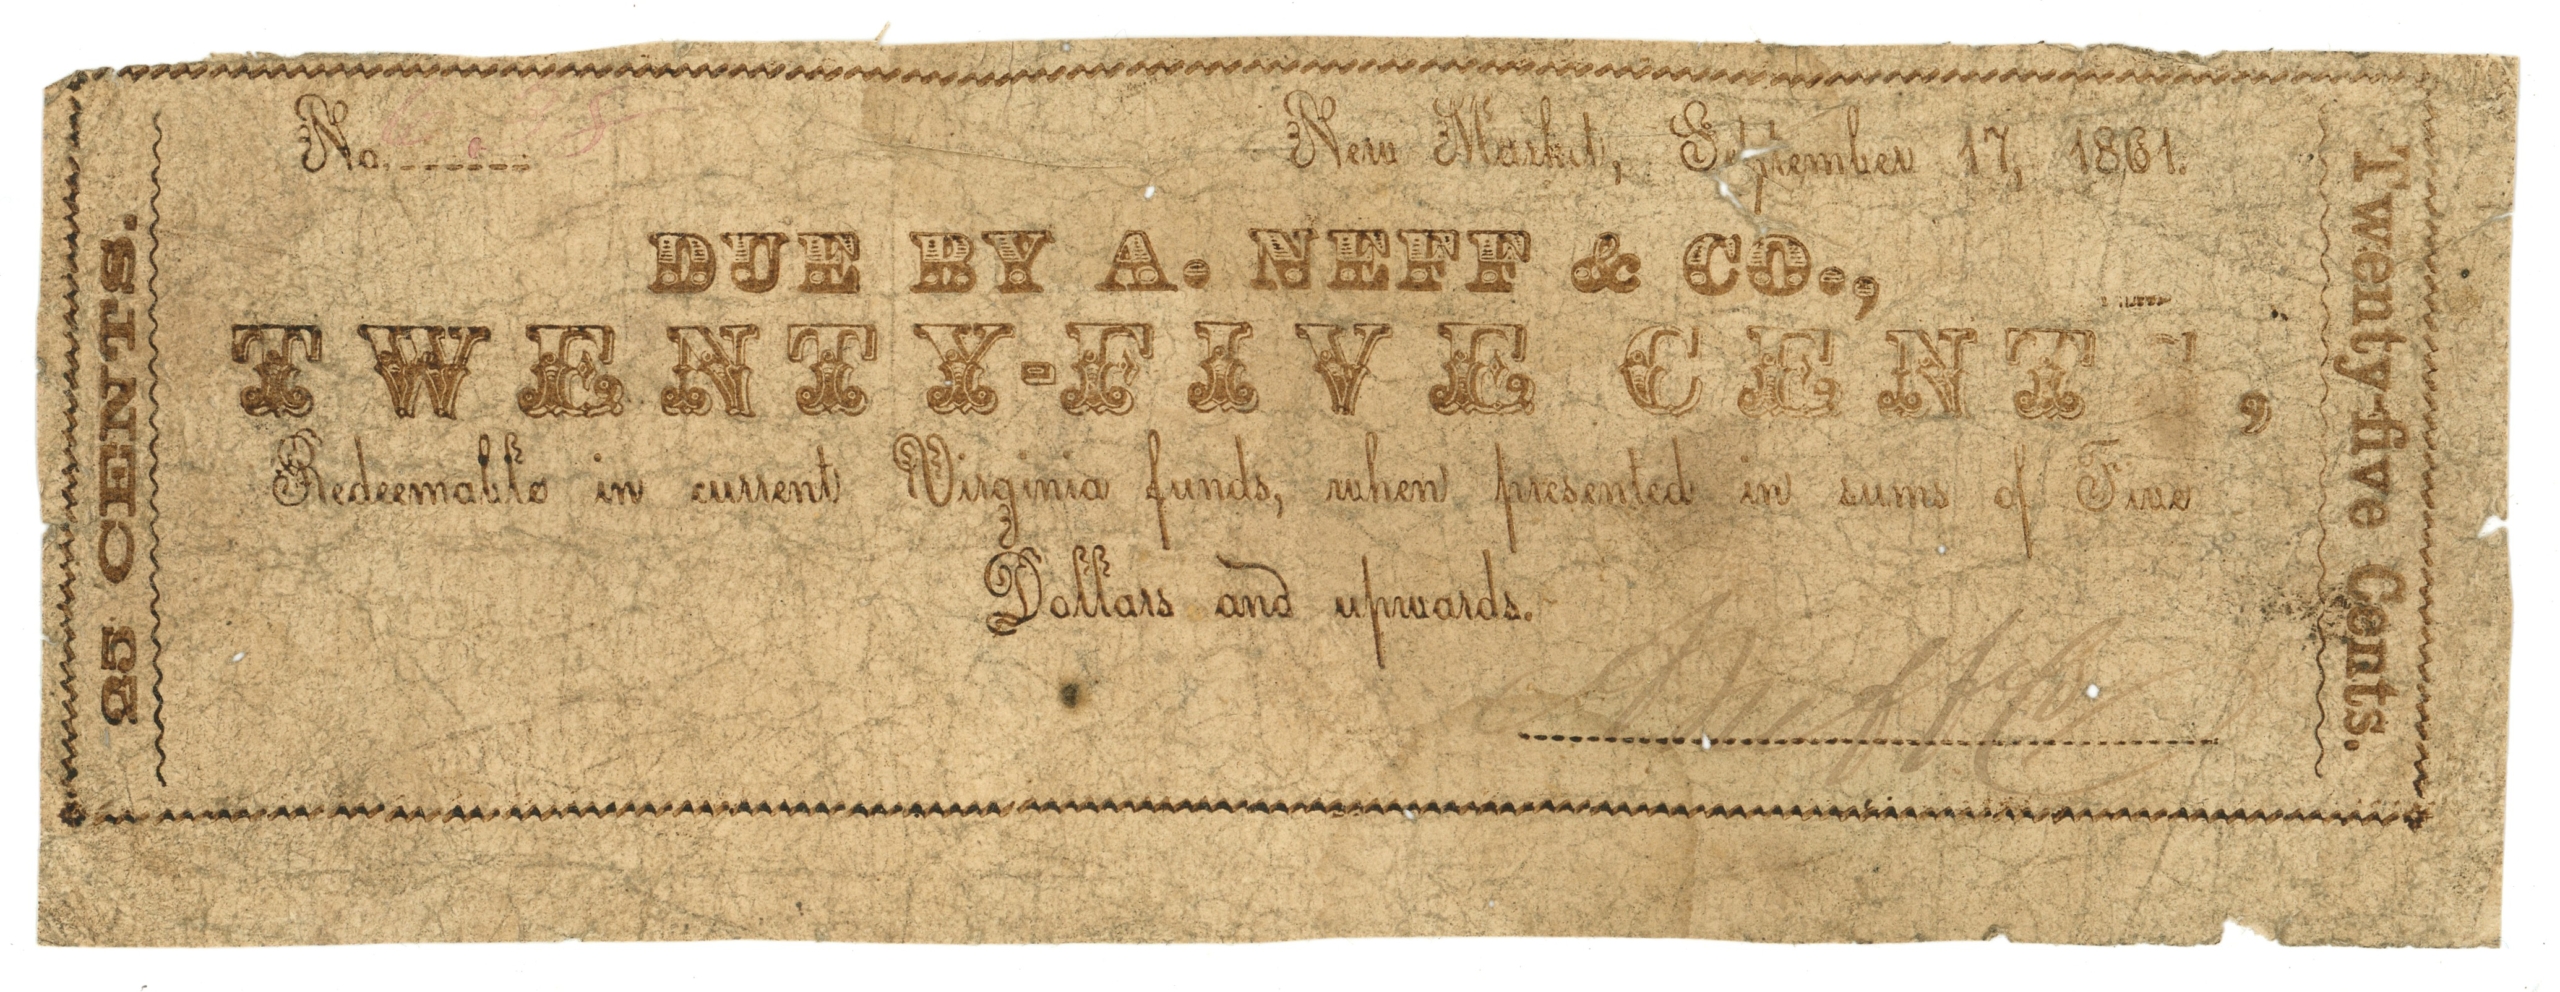 No.
New Market, September 17, 1861.
DUE BY A. NEFF & CO.,
TWENTY-FIVE CENT ,
Redeemable in current Virginia funds, when presented in sums of Five
Dollars and upwards.
25 CENTS.
Twenty-five Cents.